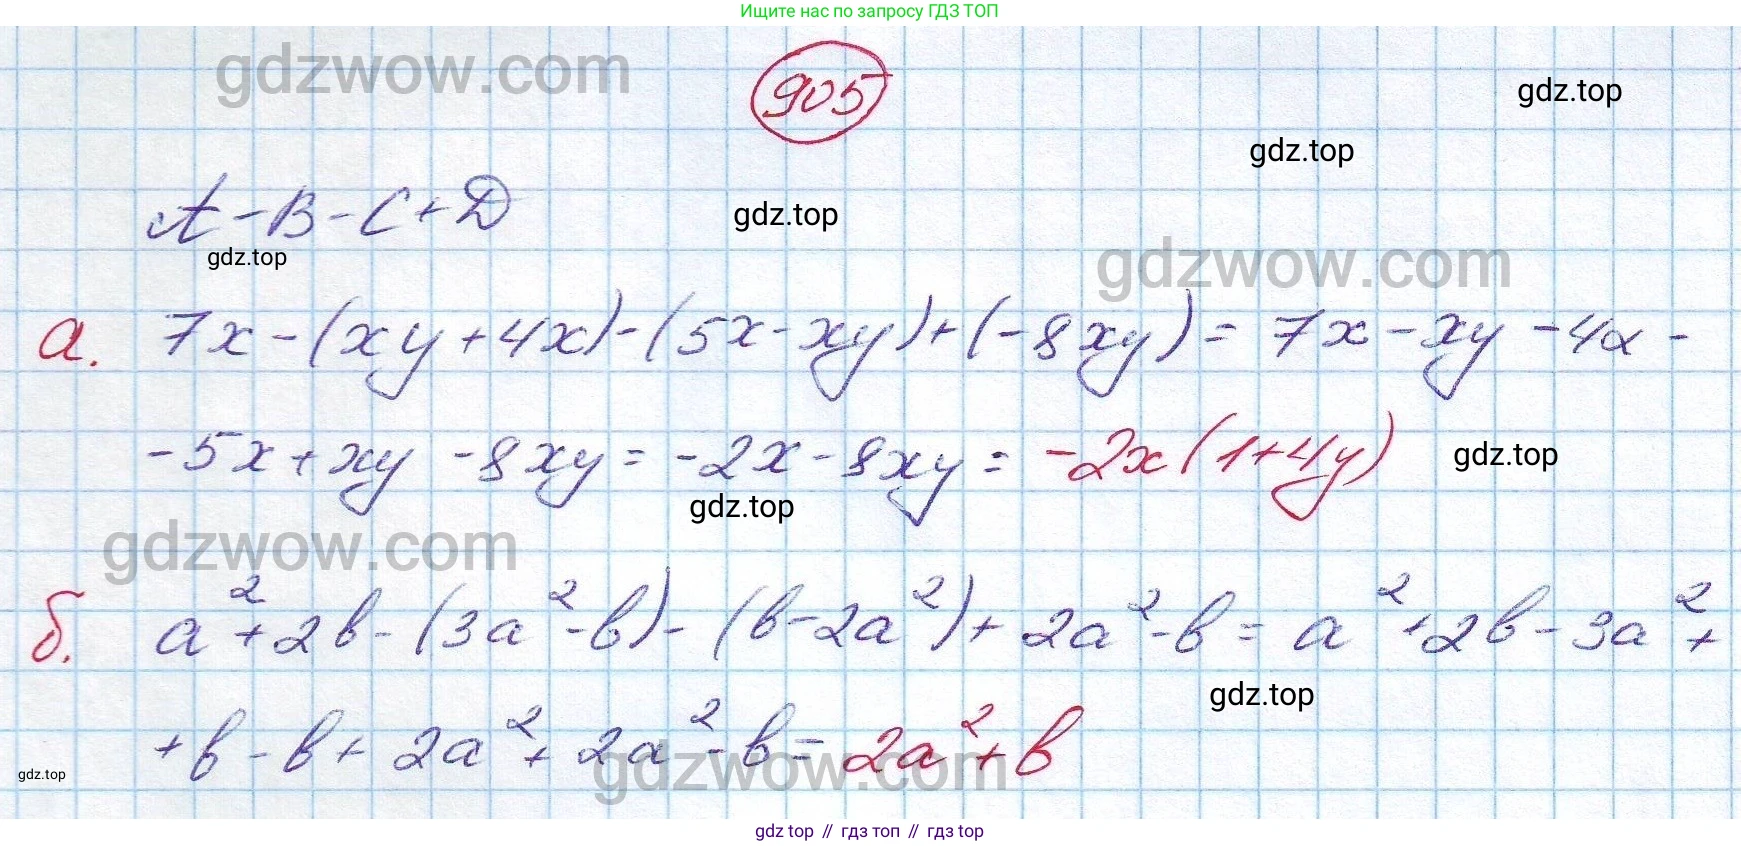 Ищите нас по запросу ГДЗ ТОП
905
gdzwow.com
gdz.top
gdz.top
A - B - C + D
gdz.top
gdz.top
gdzwow.com
а. 7x - (xy + 4x) - (5x - xy) + (-8xy) = 7x - xy - 4x -
- 5x + xy - 8xy = -2x - 8xy = -2x(1+4y)
gdz.top
gdz.top
gdzwow.com
б. a² + 2b - (3a² - b) - (b - 2a²) + 2a² - b = a² + 2b - 3a² +
gdz.top
+ b - b + 2a² + 2a² - b = 2a² + b
gdzwow.com
gdz.top
gdz.top // гдз топ // гдз top